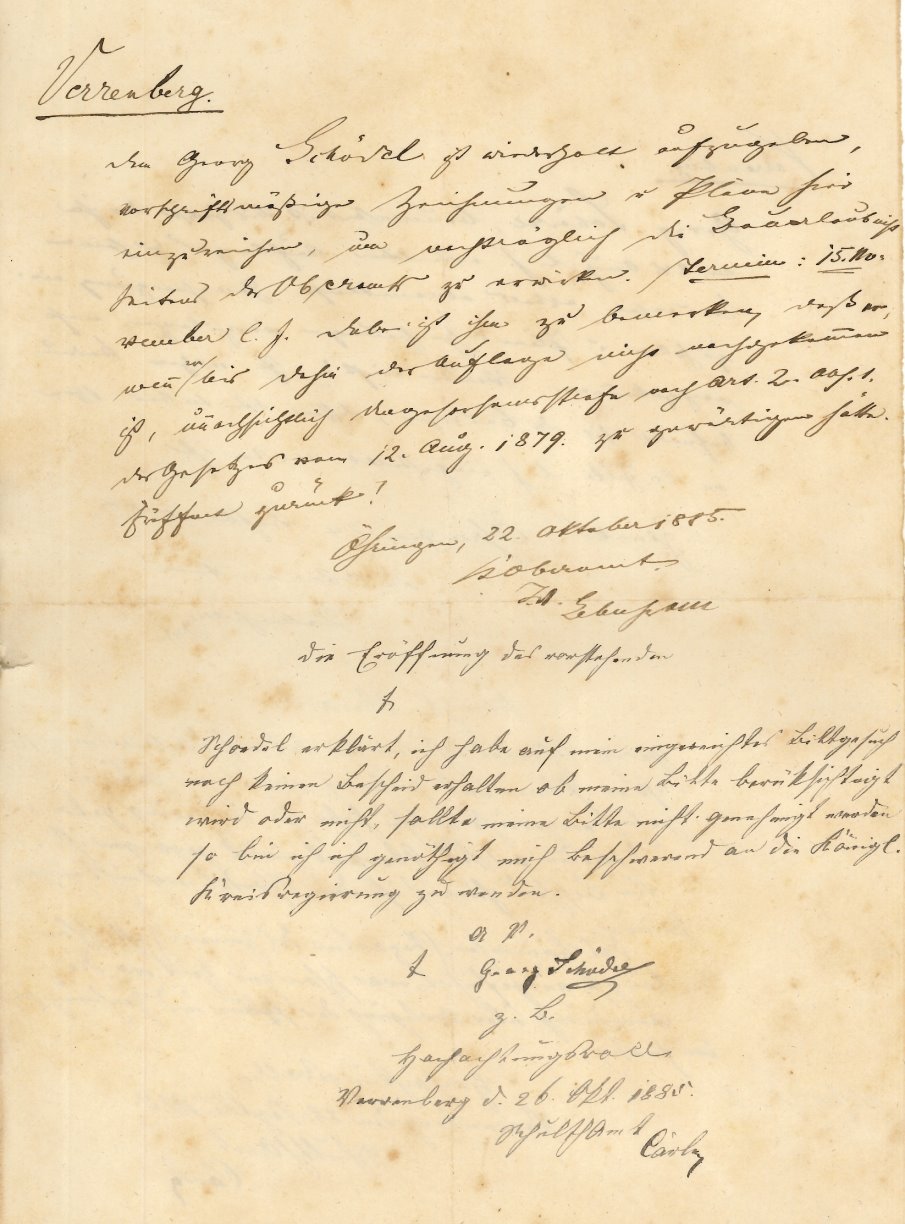 Verrenberg.
dem Georg Schödel ist wiederholt aufzugeben,
vorschriftsmäßige Zeichnungen u Pläne hier
einzureichen, um nachträglich die Bauerlaubniß
Seitens des Oberamts zu erwirken. Termin: 15. No-
vember l. J. dabei ist ihm zu bemerken, daß er,
wenn er bis dahin der Auflage nicht nachgekommen
ist, unnachsichtlich Ungehorsamsstrafe nach Art. 2. Abs. 1.
des Gesetzes vom 12. Aug. 1879. zu gewärtigen hätte.
zurück!
Öhringen, 22. Oktober 1885.
K. Oberamt.
die Eröffnung des vorstehenden
t
Schoedel erklärt, ich habe auf mein eingereichtes Bittgesuch
noch keinen Bescheid erhalten ob meine Bitte berüksichtigt
wird oder nicht, sollte meine Bitte nicht genehmigt werden
so bin ich ich genöthigt mich beschwerend an die Königl.
Kreisregierung zu wenden.
t Georg Schödel
z. B.
Hochachtungsvoll
Verrenberg d. 26. Okt. 1885.
SchulthAmt